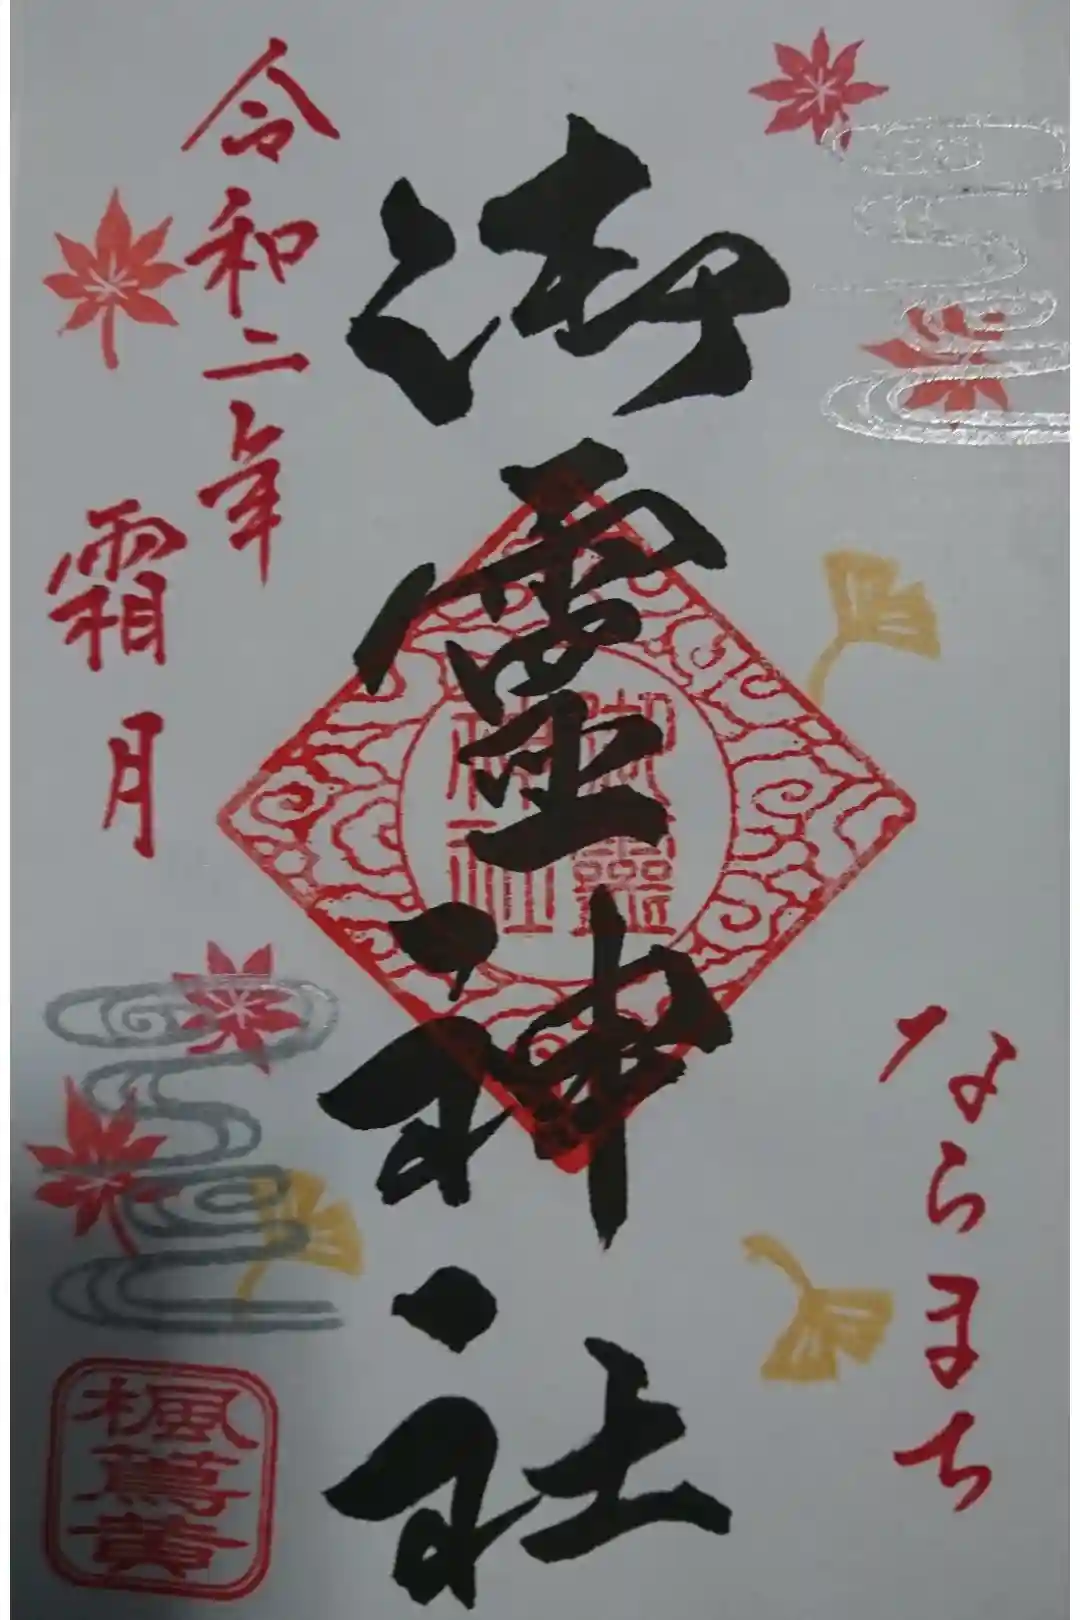 ならまち
御靈神社
御靈
神社
令和二年
霜月
楓蔦黄